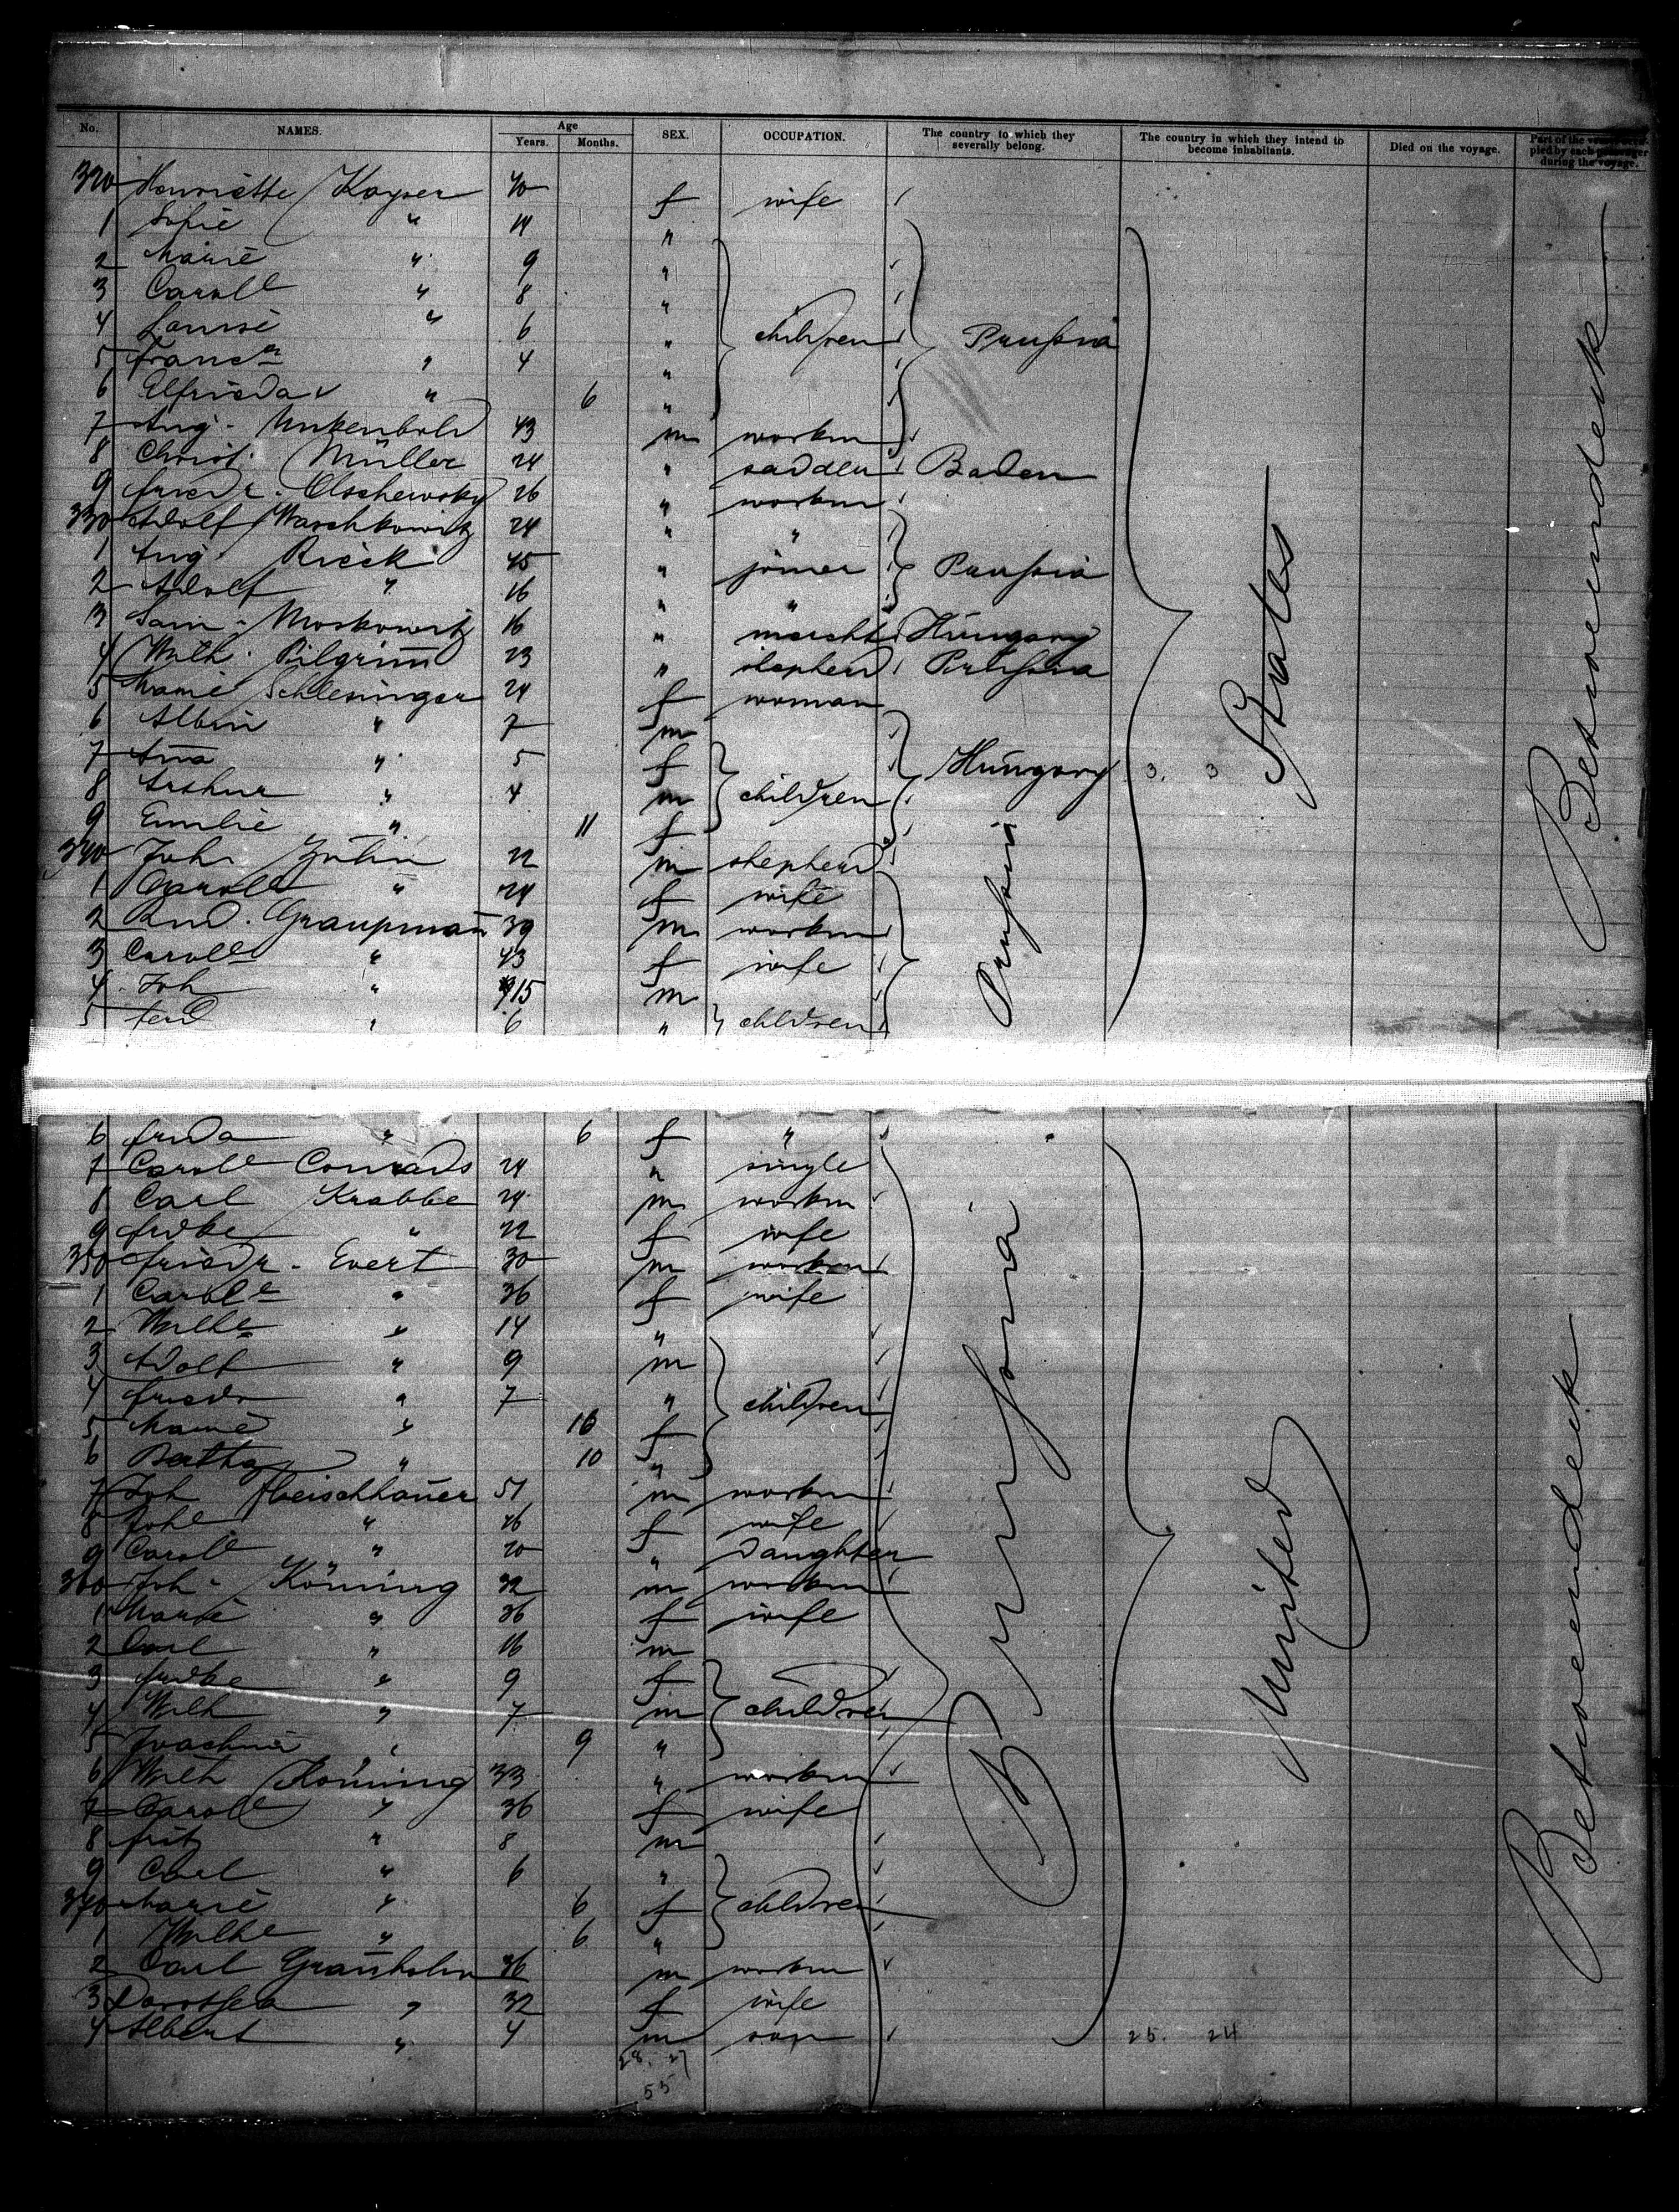 No. NAMES. Age Years. Months. SEX. OCCUPATION. The country to which they severally belong. The country in which they intend to become inhabitants. Died on the voyage. Part of the pied by each passenger during the voyage.
320 Henriette Kayser 40 f wife
1 Sofie " 14 "
2 Marie " 9 "
3 Carole " 8 "
4 Louise " 6 " children Prussia
5 " 4 "
6 Elfrieda " 6 "
7 Aug. 43 m workm
8 Christ. Müller 24 " saddler Baden
9 Friedr. Olschewsky 26 " workm
330 Adolf Waschkowitz 24 " "
1 Aug. Rieck 45 " joiner Prussia
2 Adolf " 16 " "
3 Sam. Moskowitz 16 " Hungary
4 Wilh. Pilgrim 23 " Prussia
5 Marie Schlesinger 24 f woman
6 Albin " 7 m
7 Ana " 5 f Hungary 3. 3
8 Arthur " 4 m children
9 Emilie " 11 f
340 Joh. 22 m shepherd
1 Carole " 24 f wife
2 Rud. Graupman 39 m workm
3 Carole " 43 f wife
4 Joh " 15 m
5 Ferd " 6 " children
Prussia
States
Betweendeck
6 Frida " 6 f "
7 Carole Conrads 24 " single
8 Carl Krabbe 24 m workm
9 Frdke " 22 f wife
350 Friedr. Evert 30 m workm
1 Carole " 36 f wife
2 Wilhe " 14 "
3 Adolf " 9 m
4 Friedr " 7 " children
5 Marie " f
6 Bertha " 10 "
7 Joh Fleischhauer 51 m workm
8 Johe " f wife
9 Carole " 20 " Daughter
360 Joh. Köning 32 m workm
1 Marie " 36 f wife
2 Carl " 16 m
3 Frdke " 9 f
4 Wilh " 7 m children
5 " 9 "
6 Wilh Köning 33 " workm
7 Carole " 36 f wife
8 Fritz " 8 m
9 Carl " 6 "
370 Marie " 6 f children
1 Wilhe " 6 "
2 Carl 36 m workm
3 Dorothea " 32 f wife
4 Albert " 4 m son 25. 24
28. 27
55
Prussia
United
Betweendeck